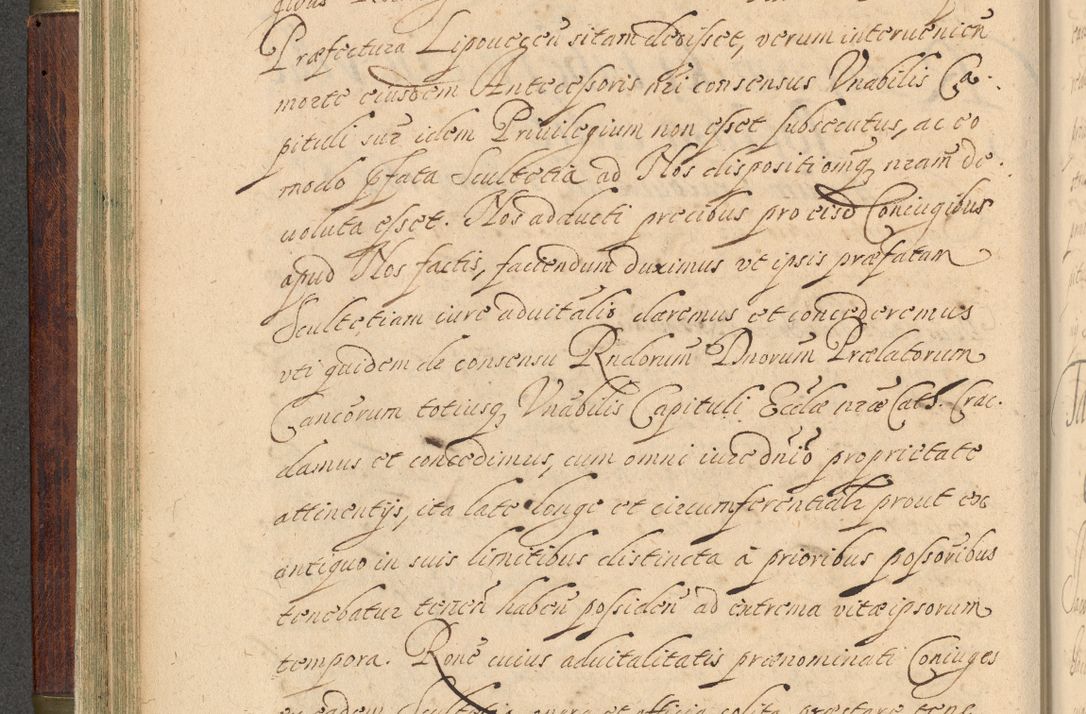 Præfectura Lipouegen̄ sitam dedisset, verum interuenien̄
morte eiusdem Antecessoris nr̄i consensus Vnābilis Ca-
pituli sup̱ idem Priuilegium non esset subsecutus, ac eo
modo p̱fata Scultetia ad Nos dispositionq̢ nr̄am de-
uoluta esset. Nos adducti precibus pro eisd̄ Coniugibus
apud Nos factis, faciendum duximus vt ipsis præfatam
Scultetiam iure aduitālis daremus et concederemus
vti quidem de consensu Rn̄dorum Dn̄orum Prælatorum
Canc̄orum totiusq̢ Vnābilis Capituli Eccl̄æ nr̄æ Cath. Crac.
damus et concedimus, cum omni iure dn̄io proprietate
attinentijs, ita late longe et circumferentialr̄ prout ex
antiquo in suis limitibus distincta à prioribus poss̄oribus
tenebatur tenen̄ haben̄ possiden̄ ad extrema vitæ ipsorum
tempora. Ron̄e cuius aduitalitatis prænominati Coniuges
ex eadem Scultetia opera et officia solita præstare tene-